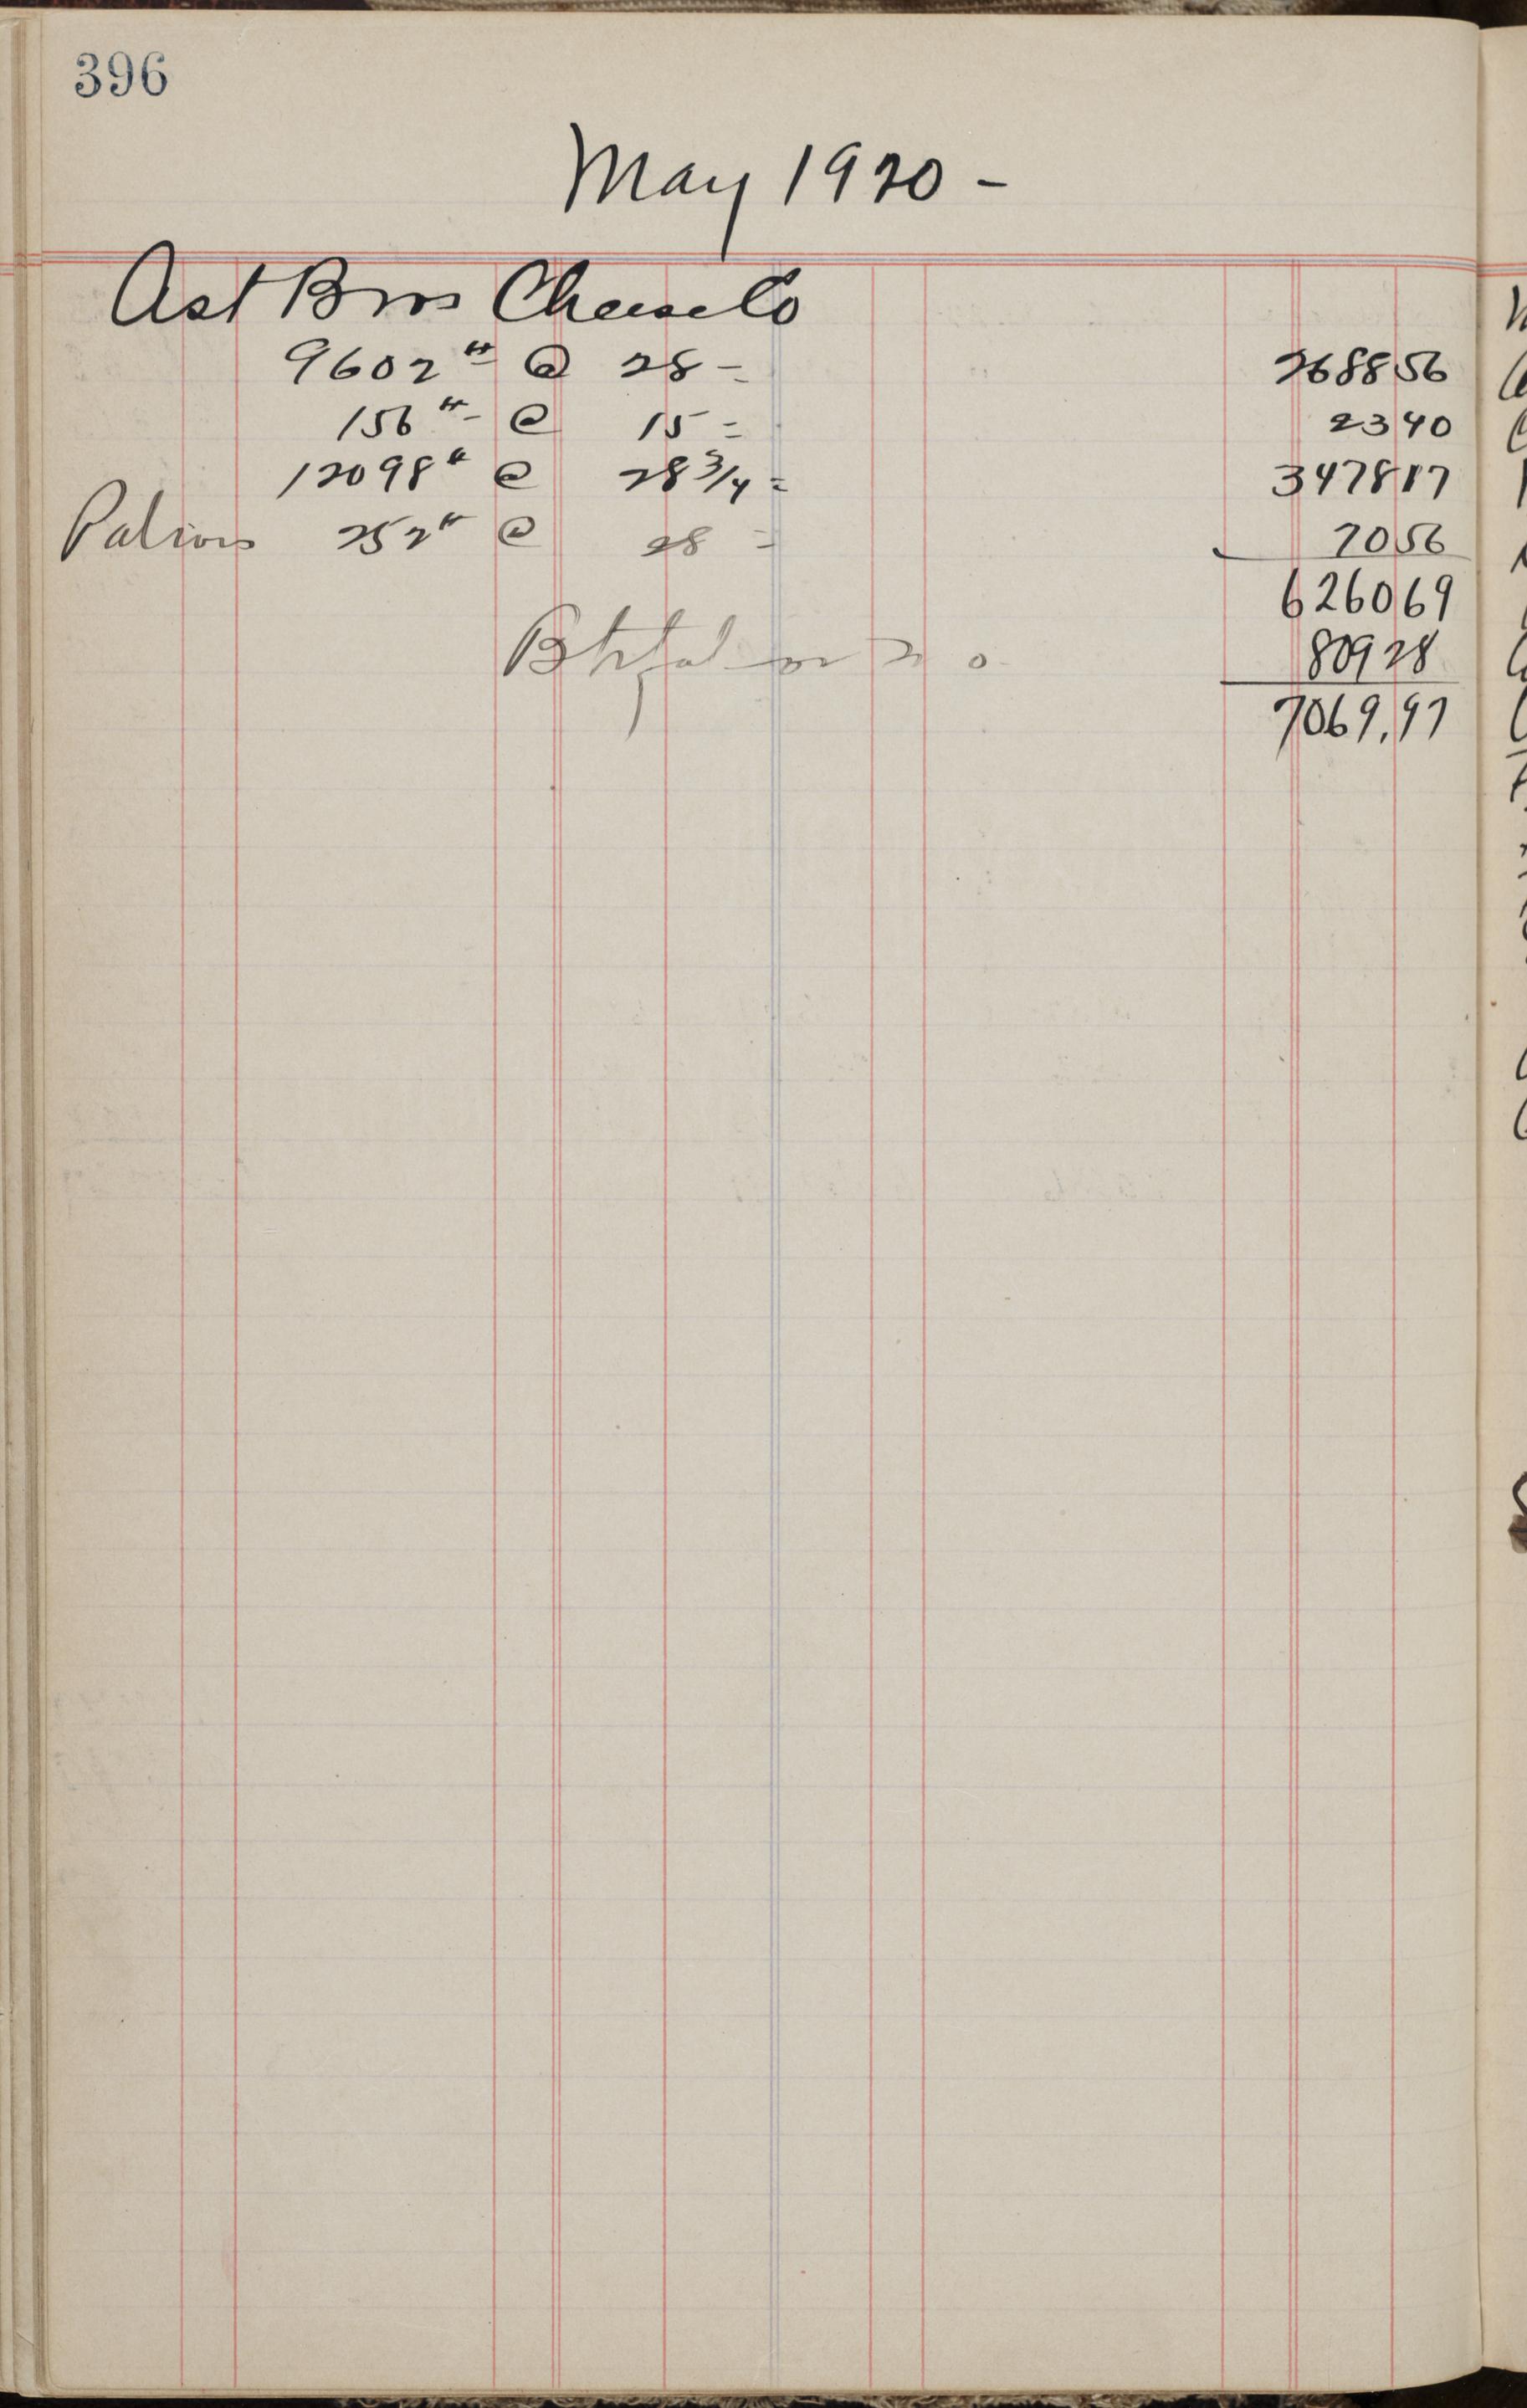 396
May 1920 -
Ast Bros Cheese Co
9602 # @ 28 - 2688 56
156 # - @ 15 = 23 40
12098 # @ 28 3/4 = 3478 17
Patrons 252 # @ 28 = 70 56
6260 69
809 28
7069.97